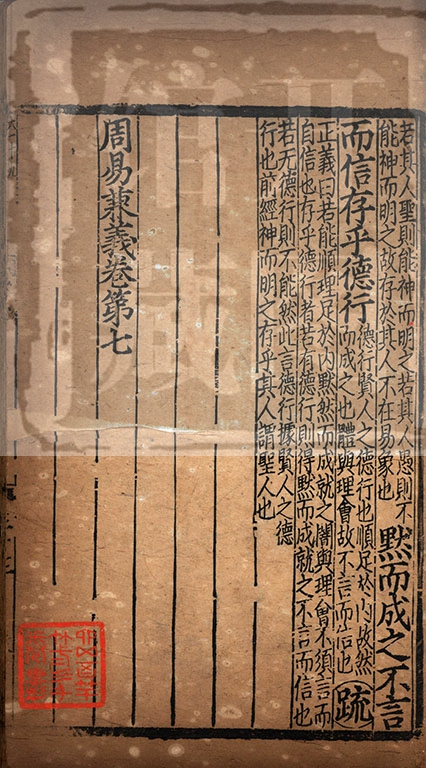 若其人聖則能神而明之若其人愚則不
能神而明之故存於其人不在易象也
默而成之不言
而信存乎德行
德行賢人之德行也順足於内故然
而成之也體與理會故不言而信也
疏
正義曰若能順理足於内默然而成就之闇與理會不須言而
自信也存乎德行者若有德行則得默而成就之不言而信也
若无德行則不能然此言德行據賢人之德
行也前經神而明之存乎其人謂聖人也
周易兼義卷第七
藏